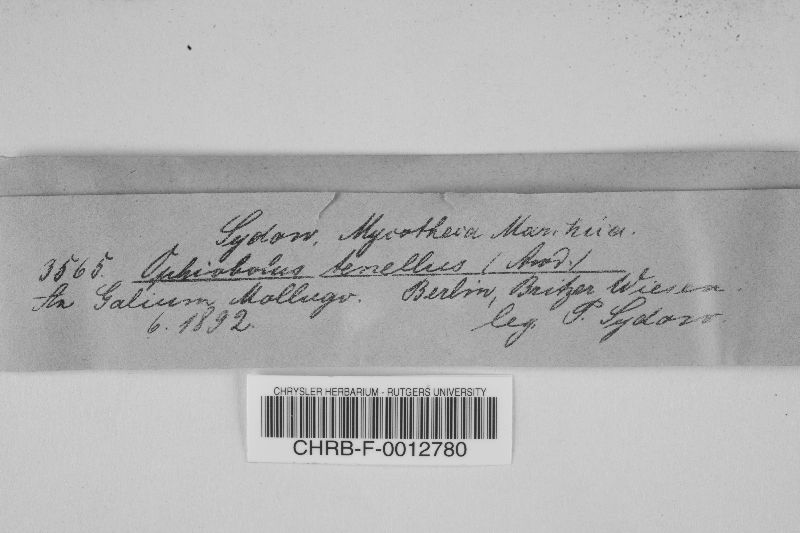 Sydow, Mycotheca Marchica.
3565. Ophiobolus tenellus (Awd.)
An Galium Mollugo. Berlin, Britzer Wiesen.
6. 1892. leg. P. Sydow.
CHRYSLER HERBARIUM - RUTGERS UNIVERSITY
CHRB-F-0012780